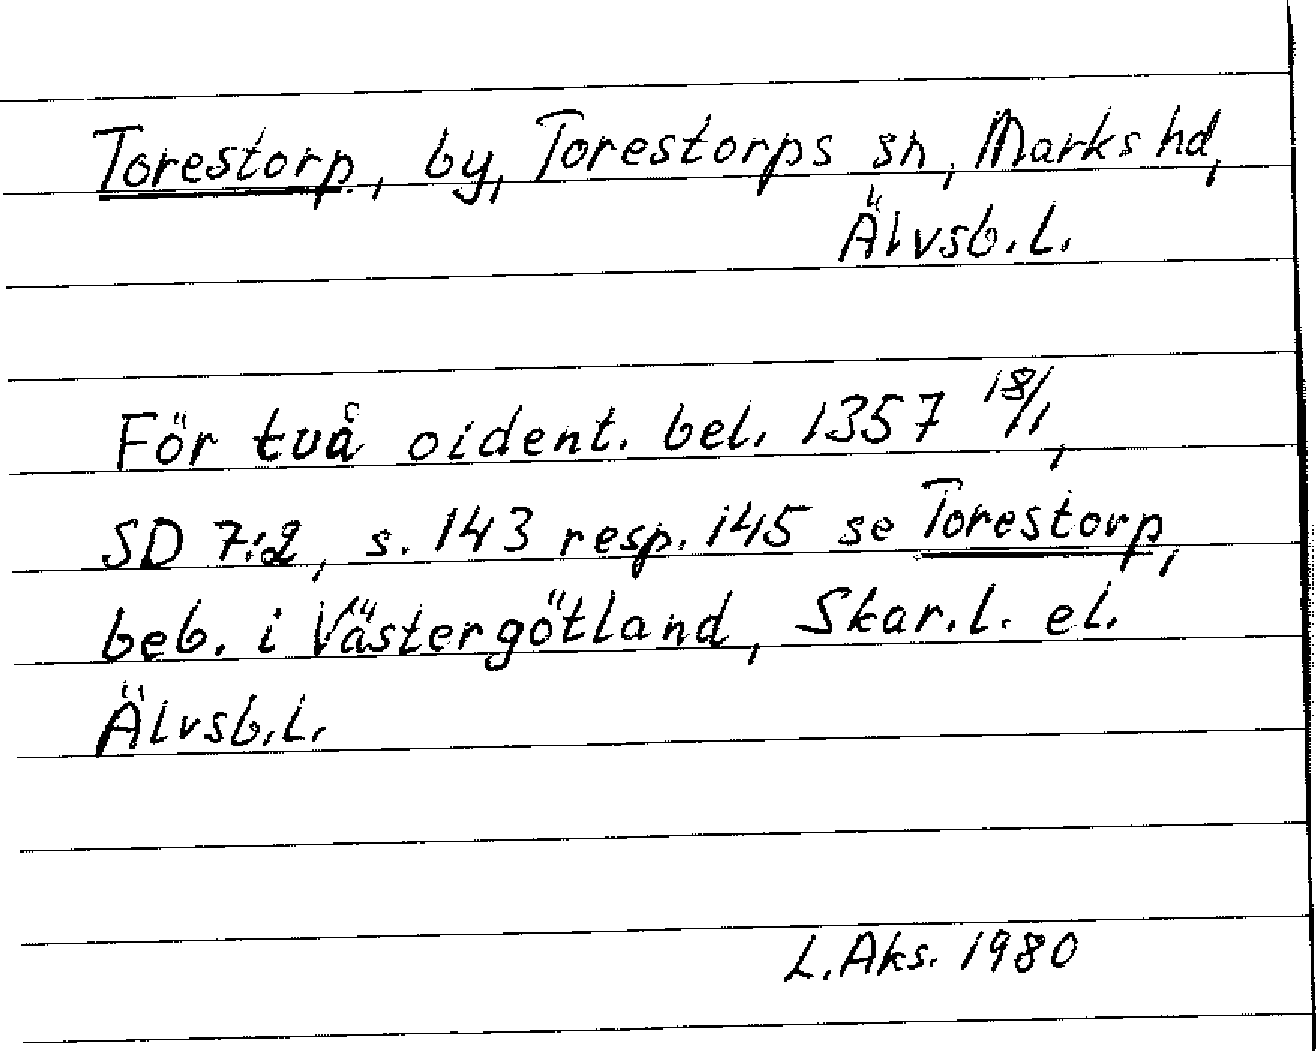 Torestorp, by, Torestorps sn, Marks hd,
Älvsb. l.
För två oident. bel. 1357 18/1,
SD 7:2, s. 143 resp. 145 se Torestorp,
beb. i Västergötland, Skar. l. el.
Älvsb. l.
L. Aks. 1980